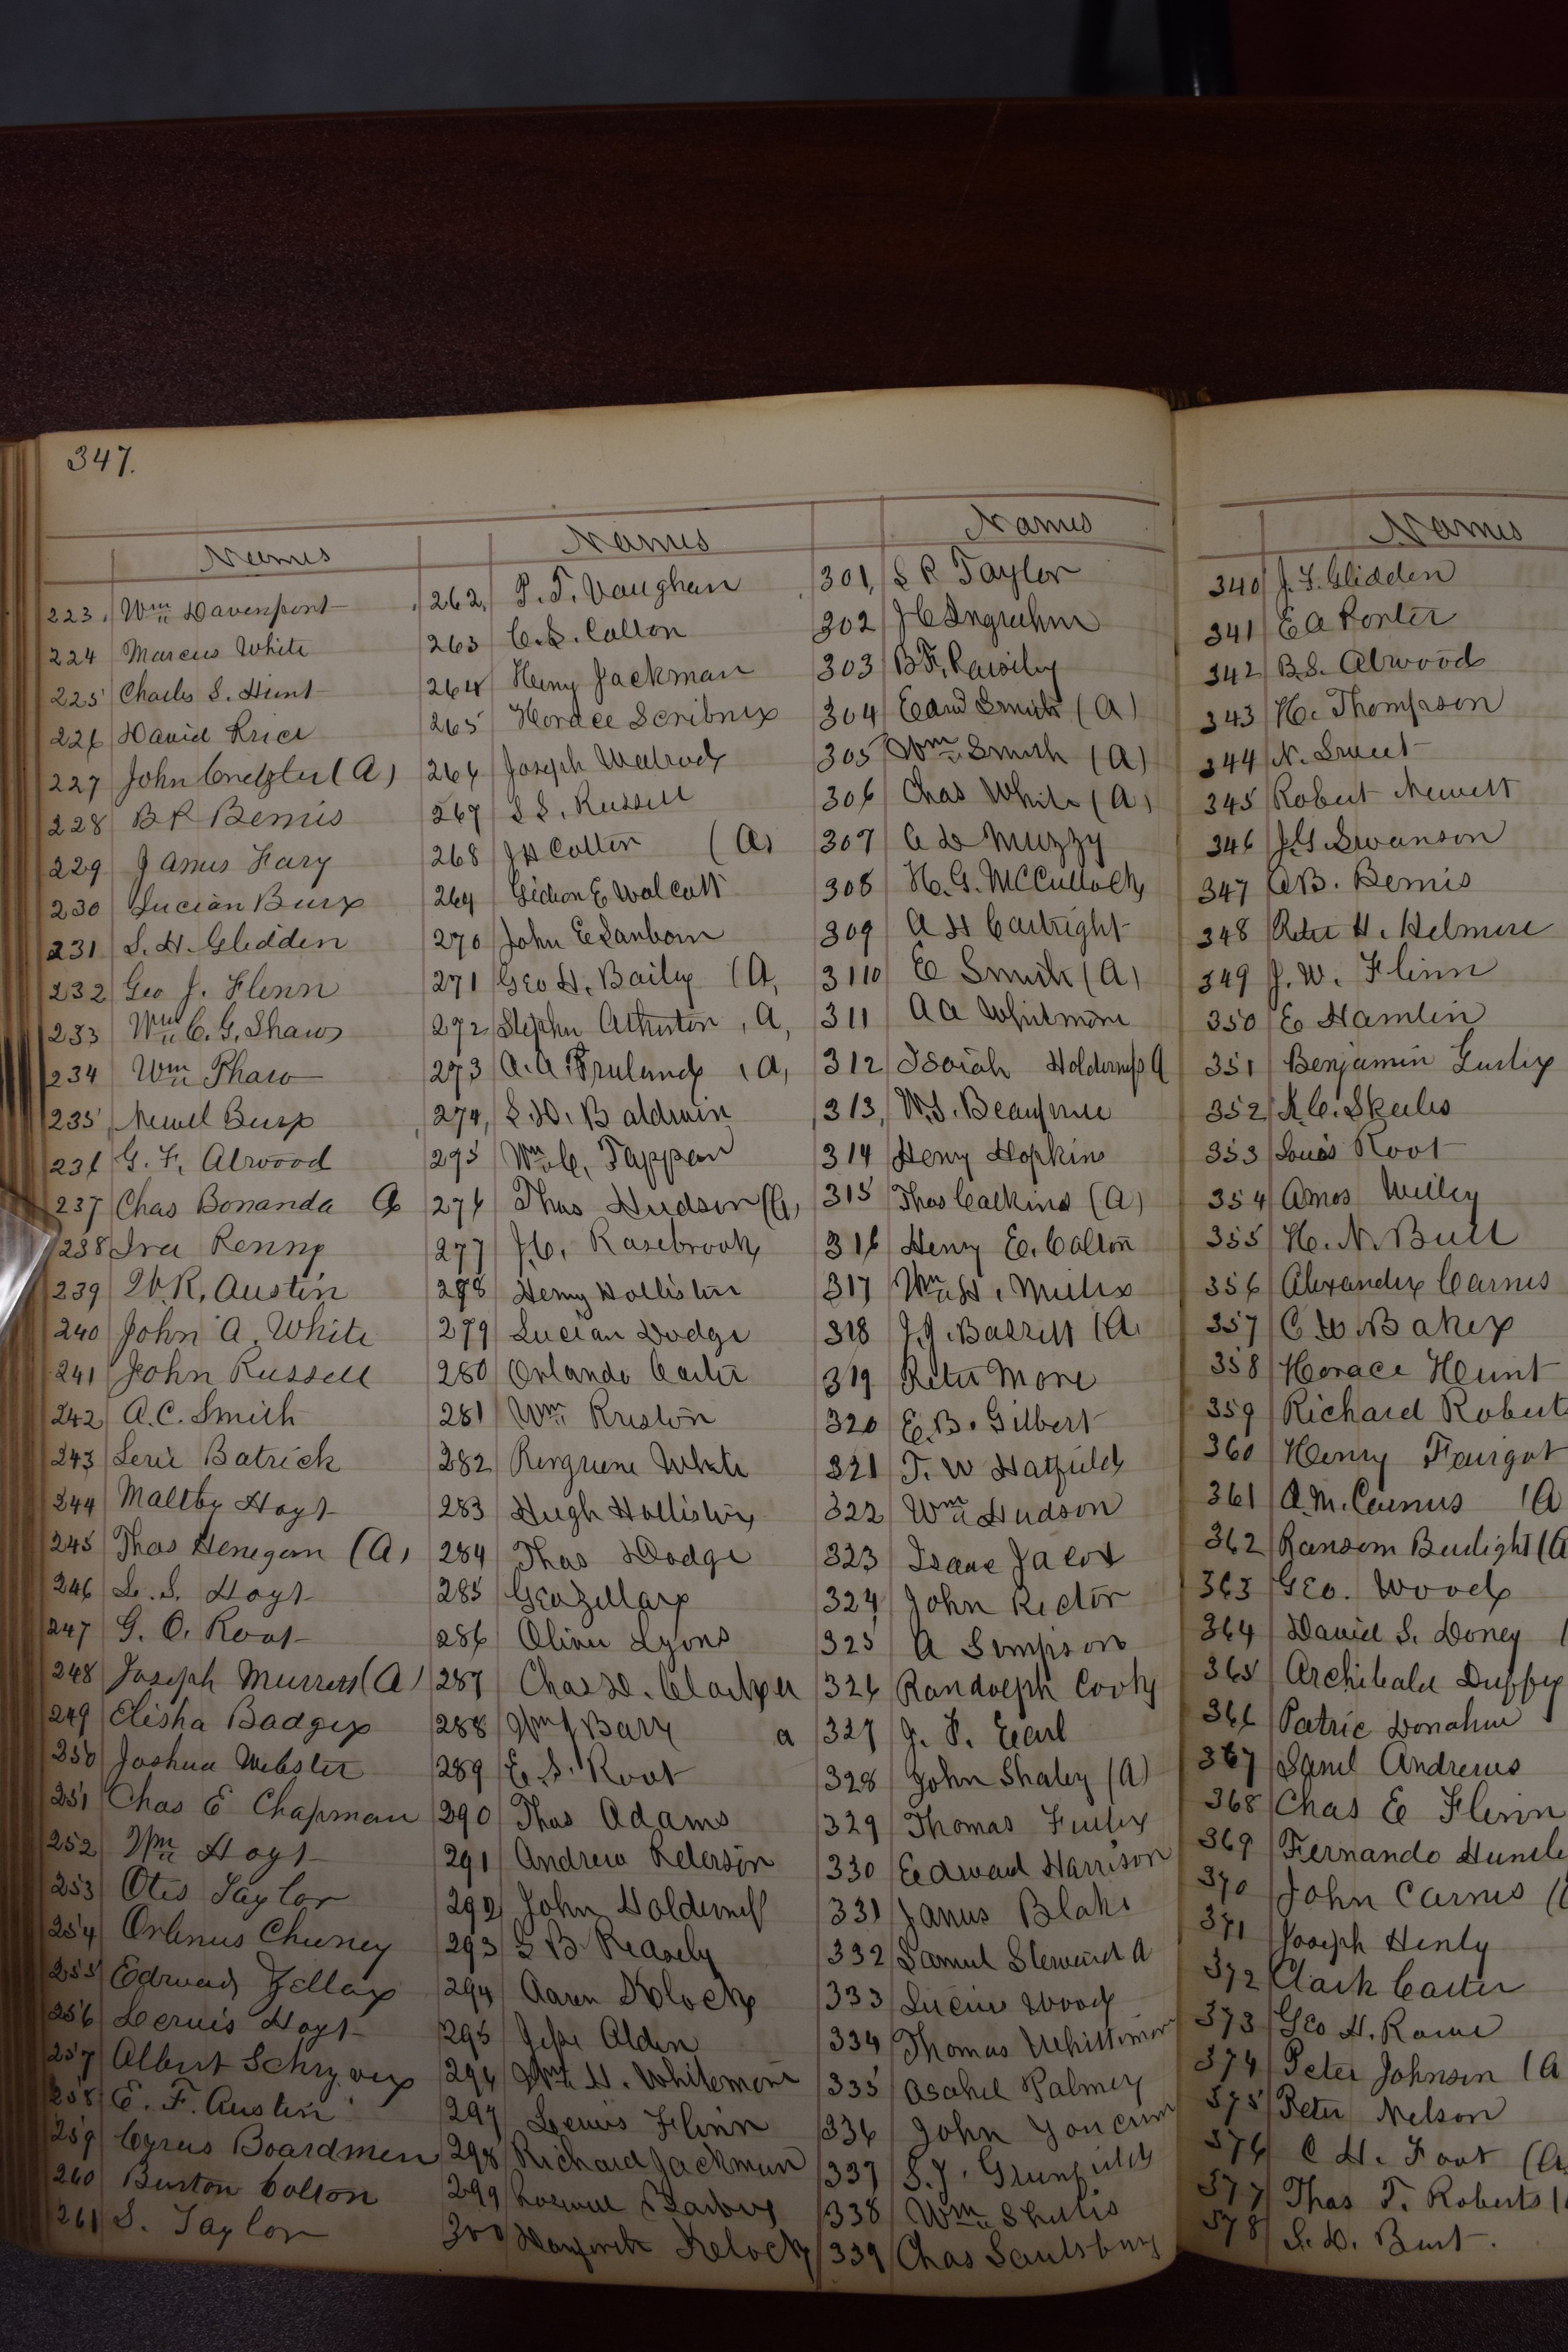 347.
Names
223. Wm Davenport
224 Marcus White
225 Charles S. Hunt
226 David Price
227 John Cretzler (A)
228 B R Bemis
229 James Fary
230 Lucian Burr
231 S. H. Glidden
232 Geo J. Flinn
233 Wm C. G. Shaw
234 Wm Pharo
235 Newel Burr
236 G. F. Atwood
237 Chas Bonanda A
238 Ira Penny
239 W. R. Austin
240 John A. White
241 John Russell
242 A. C. Smith
243 Batrick
244 Maltby Hoyt
245 Thos Henegan (A)
246 L. S. Hoyt
247 G. O. Root
248 Joseph (A)
249 Elisha Badger
250 Joshua Webster
251 Chas E Chapman
252 Wm Hoyt
253 Otis Taylor
254 Cheney
255 Edward Zellar
256 Lewis Hoyt
257 Albert Schryver
258 E. F. Austin
259 Cyrus Boardmen
260 Burton Colton
261 S. Taylor
Names
262. P. T. Vaughan
263 C. S. Colton
264 Henry Jackman
265 Horace Scribner
266 Joseph Walrod
267 S S. Russell
268 J H Colton (A)
269 Gideon E Walcott
270 John E Sanborn
271 Geo H. Baily (A)
272 Stephen Atherton (A)
273 A. A. (A)
274, S. D. Baldwin
275 Wm C. Tappan
276 Thos Hudson (A)
277 J. C. Rosebrook
278 Henry Hollister
279 Lucian Dodge
280 Orlando Carter
281 Wm Preston
282 Peregrine White
283 Hugh Hollister
284 Thos Dodge
285 Geo Zellar
286 Oliver Lyons
287 Chas D. a
288 Wm J Barr a
289 E. S. Root
290 Thos Adams
291 Andrew Peterson
292 John Holderness
293 S B Peasely
294 Aaron Klock
295 Jesse Alden
296 Wm H. Whitemore
297 Lewis Flinn
298 Richard Jackman
299 Roswell
300 Klock
Names
301, S P Taylor
302 J C Ingrahm
303 B F.
304 Edard Smith (A)
305 Wm Smith (A)
306 Chas White (A)
307 C D Muzzy
308 H. G. McCulloch
309 A H Cartright
3110 E Smith (A)
311 A A Whitmore
312 Isaiah Holderness A
313, W. S.
314 Henry Hopkins
315 Thos Calkins (A)
316 Henry E. Colton
317 Wm H. Miller
318 J. J. Barrett (A)
319 Peter More
320 E. B. Gilbert
321 T. W Hatfield
322 Wm Hudson
323 Isaac Jacox
324 John Rector
325 A Simpson
326 Randolph Cook
327 J. P. Earl
328 John Shaley (A)
329 Thomas Fuller
330 Edward Harrison
331 James Blake
332 Samuel Steward A
333 Lucius Wood
334 Thomas Whittimore
335 Asahel Palmer
336 John Youcum
337 S. J. Greenfield
338 Wm
339 Chas Saulsbury
Names
340 J. F. Glidden
341 E A Porter
342 B. S. Atwood
343 H. Thompson
344 N. Sweet
345 Robert Newell
346 J. G. Swanson
347 A B. Bemis
348 Peter H. Helmire
349 J. W. Flinn
350 E Hamlin
351 Benjamin
352 Skeeles
353 Louis Root
354 Amos Willey
355 H. N. Bull
356 Alexander Carnes
357 C W. Baker
358 Horace Hunt
359 Richard Robert
360 Henry
361 A. M. Carnes (A
362 Ransom (A
363 Geo. Wood
364 David S. Doney (
365 Archibald Duffy
366 Patric Donahue
367 Saml Andrews
368 Chas E Flinn
369 Fernando
370 John Carnes (
371 Joseph Henly
372 Clark Carter
373 Geo H. Rowe
374 Peter Johnson (A
375 Peter Nelson
376 C H. Foot (A
377 Thos T. Roberts (
378 S. D. Burt.